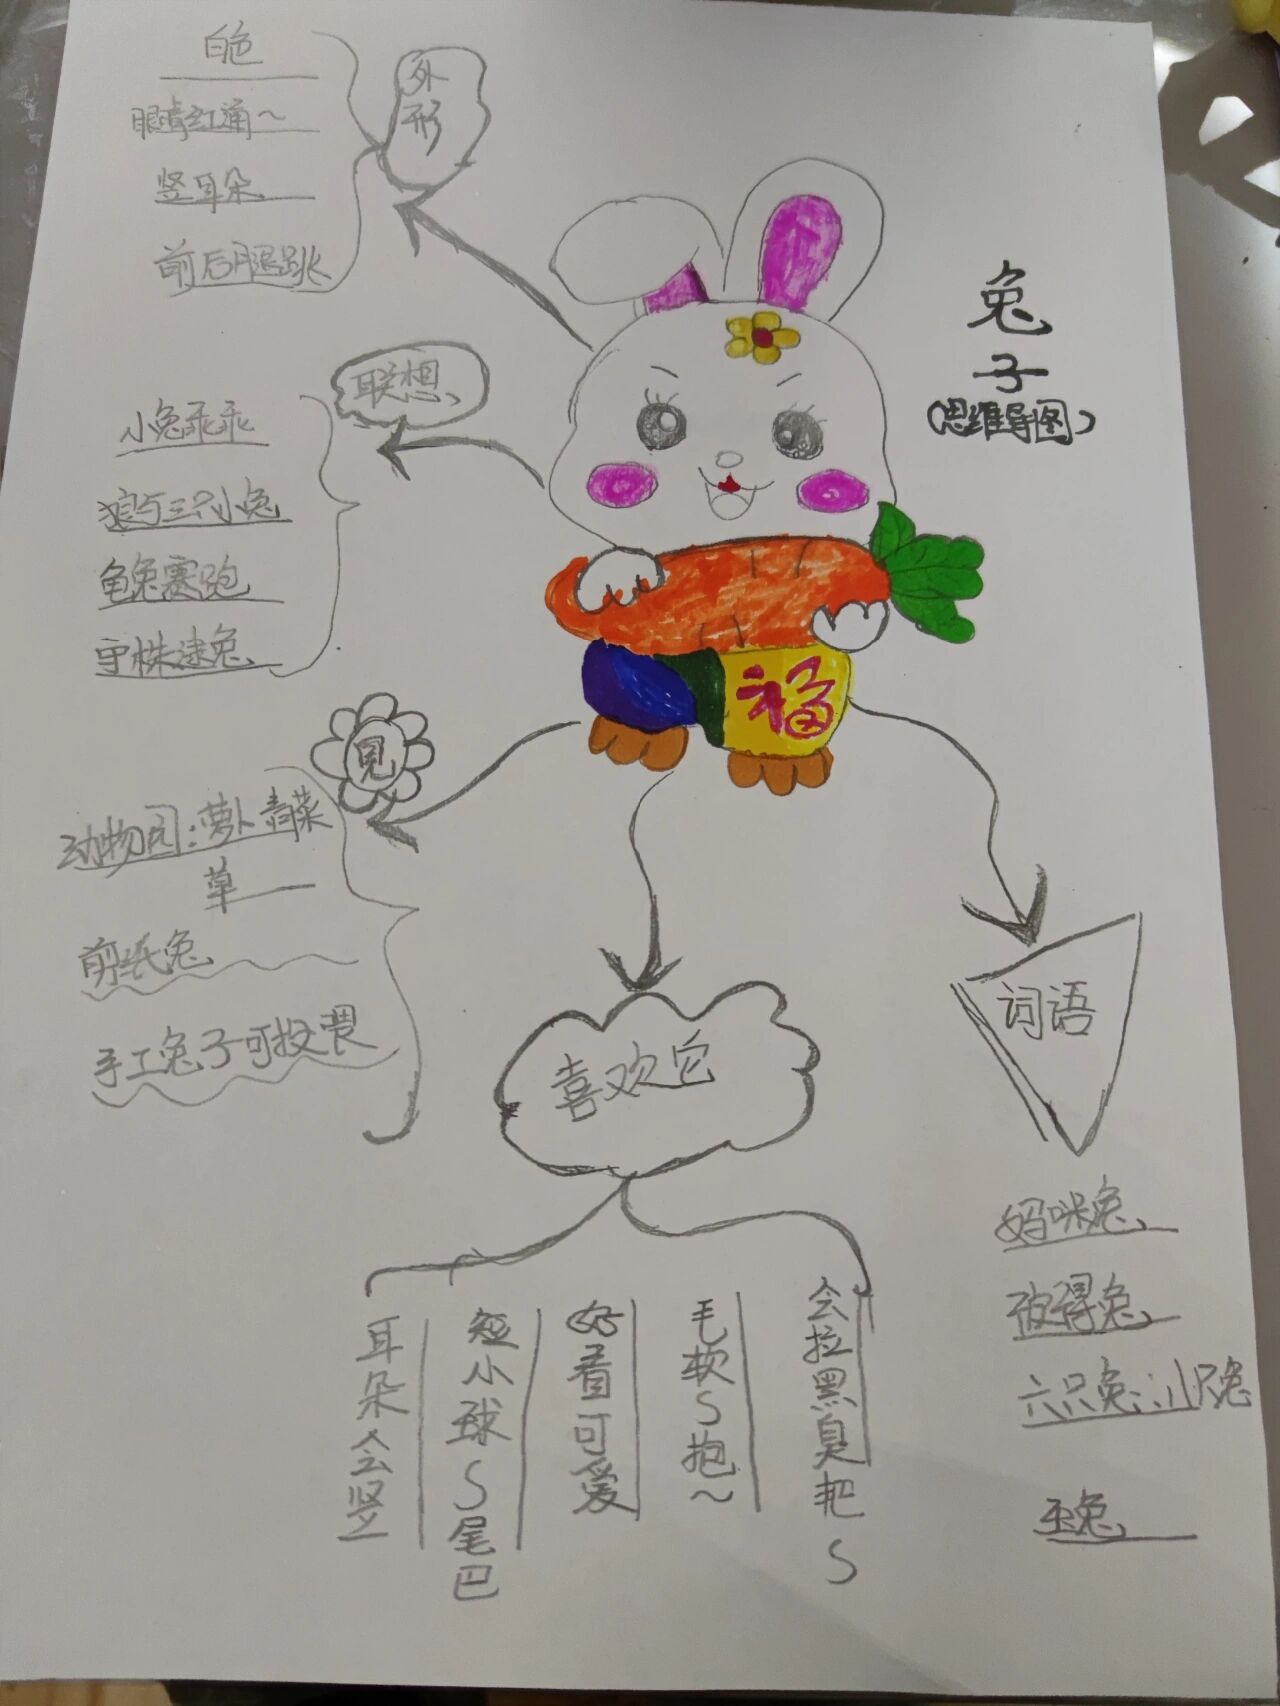 白色
外形
眼睛红通~
竖耳朵
前后腿跳
兔子
(思维导图)
联想
小兔乖乖
狼与三只小兔
龟兔赛跑
守株逮兔
福
见
动物园:萝卜青菜
草
剪纸兔
手工兔子可投喂
词语
喜欢它
妈咪兔
彼得兔
六只兔
玉兔
耳朵会竖
短小球S尾巴
好看可爱
毛软S抱~
会拉黑臭粑S